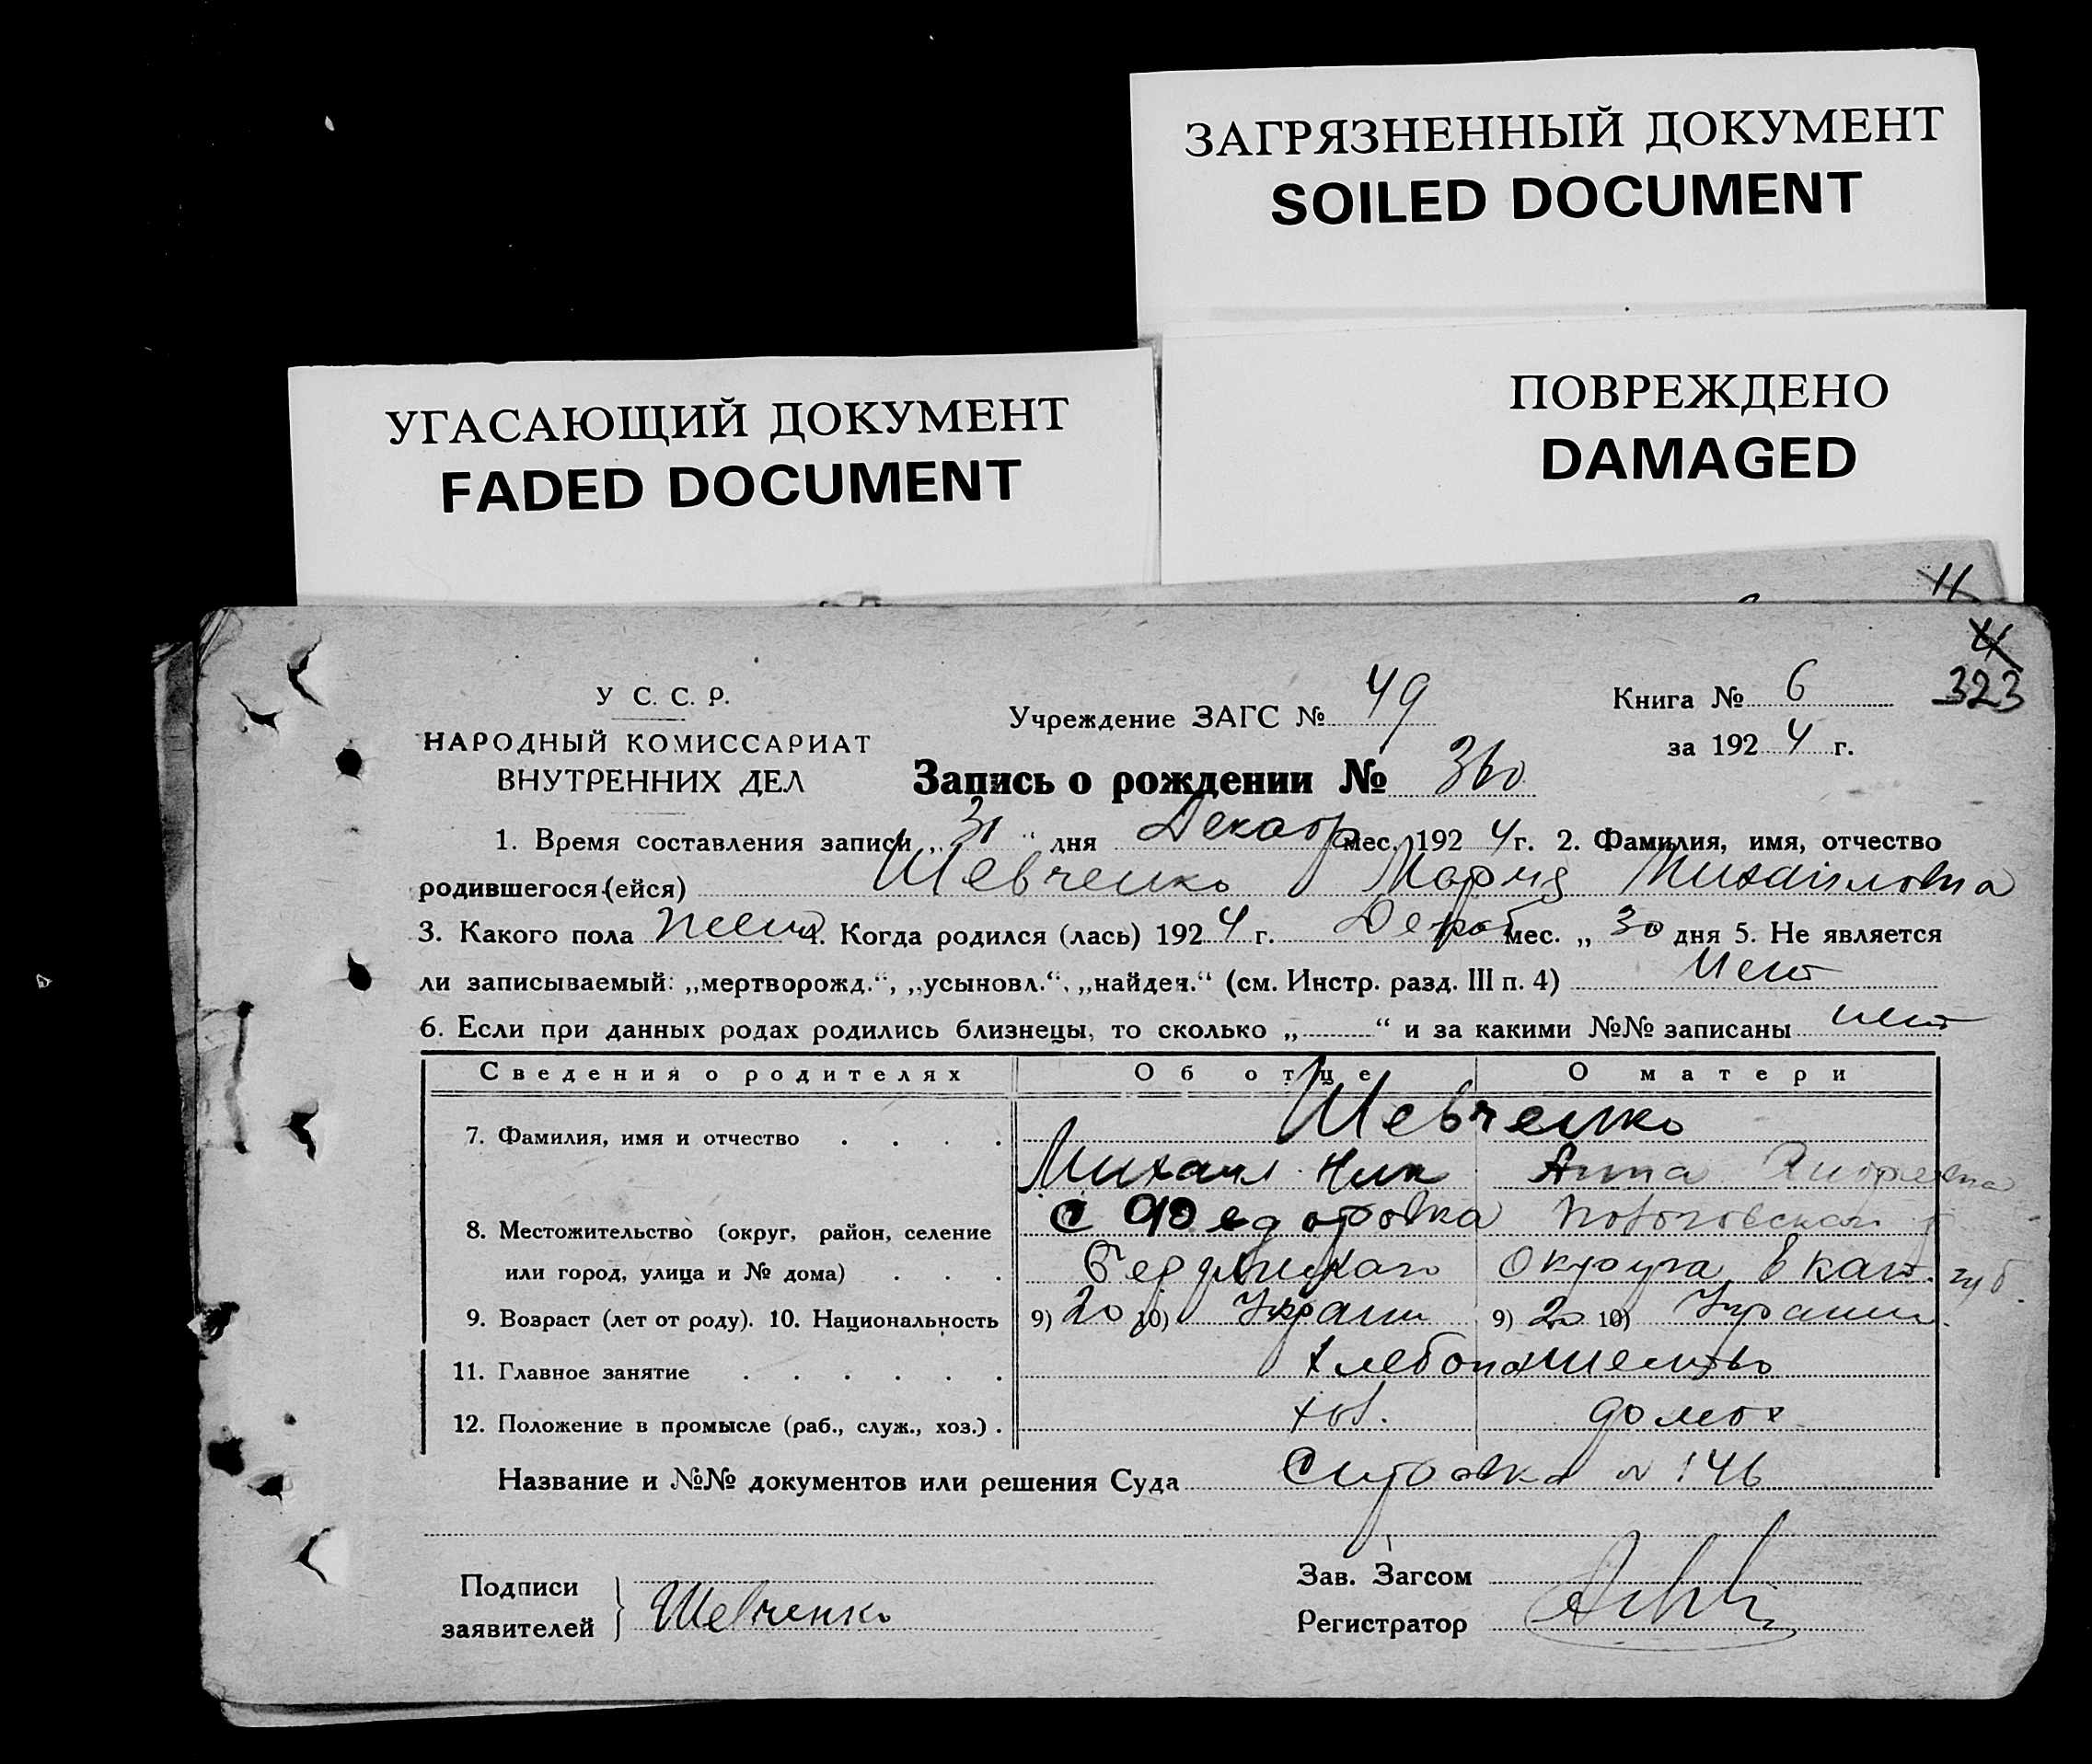 ЗАГРЯЗНЕННЫЙ ДОКУМЕНТ
SOILED DOCUMENT
ПОВРЕЖДЕНО
DAMAGED
УГАСАЮЩИЙ ДОКУМЕНТ
FADED DOCUMENT
11
323
У С. С. Р.
НАРОДНЫЙ КОМИССАРИАТ
ВНУТРЕННИХ ДЕЛ
Учреждение ЗАГС № 49
Книга № 6
за 192 4 г.
Запись о рождении № 360
1. Время составления записи „ 31 “ дня Декабр мес. 192 4 г. 2. Фамилия, имя, отчество
родившегося (ейся) Шевченко Мария Михайловна
3. Какого пола 4. Когда родился (лась) 192 4 г. Декаб мес. „ 30 дня 5. Не является
ли записываемый: „мертворожд.“, „усыновл.“, „найден.“ (см. Инстр. разд. III п. 4) Нет
6. Если при данных родах родились близнецы, то сколько „ “ и за какими №№ записаны нет
Сведения о родителях Об отце О матери
7. Фамилия, имя и отчество . . . . Шевченко
Михаил Ник Анна Андреевна
8. Местожительство (округ, район, селение с Федоровка Пологовская
или город, улица и № дома) . . . Бердянского Округа Екат. губ.
9. Возраст (лет от роду). 10. Национальность 9) 20 10) Украин 9) 20 10) Украин
11. Главное занятие . . . . . . Хлебопашество
12. Положение в промысле (раб., служ., хоз.) . хоз. домох
Название и №№ документов или решения Суда Справка № 146
Подписи
заявителей } Шевченко
Зав. Загсом
Регистратор